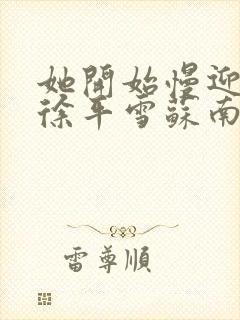 她開始慢迎
徐平雪蘇南
雷尊順